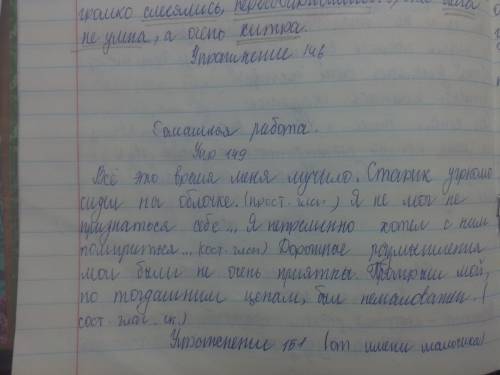 громко смеялись, переговаривались, что она
не умна, а очень хитра.
Упражнение 146
Домашняя работа.
Упр 149
Всё это время меня мучило. Старик угрюмо
сидел на облочке. (прост. глаг.) Я не мог не
признаться себе... Я непременно хотел с ним
помириться... (сост. глаг) Дорожные размышления
мои были не очень приятны. Проигрыш мой,
по тогдашним ценам, был немаловажен. (
сост. глаг. ск.)
Упражнение 151 (от имени мамочки)